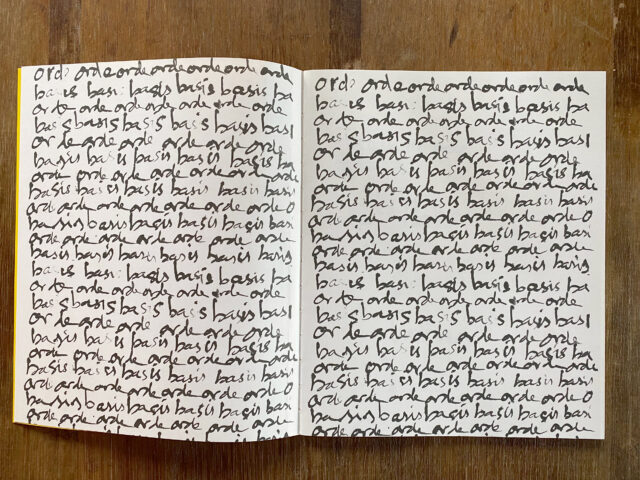 ord orde orde orde orde orde orde
basis basi basis basis basis ba
orde orde orde orde orde orde
basis basis basis basis basis basi
orde orde orde orde orde orde
basis basis basis basis basis ba
orde orde orde orde orde orde orde
basis basis basis basis basis basis
orde orde orde orde orde orde o
basis basis basis basis basis basi
orde orde orde orde orde orde orde
basis basis basis basis basis basis
basis basi basis basis basis ba
orde orde orde orde orde orde
basis basis basis basis basis basi
orde orde orde orde orde orde
basis basis basis basis basis ba
orde orde orde orde orde orde orde
basis basis basis basis basis basis
orde orde orde orde orde orde o
basis basis basis basis basis basi
orde orde orde orde orde orde orde
ord orde orde orde orde orde orde
basis basi basis basis basis ba
orde orde orde orde orde orde
basis basis basis basis basis basi
orde orde orde orde orde orde
basis basis basis basis basis ba
orde orde orde orde orde orde orde
basis basis basis basis basis basis
orde orde orde orde orde orde o
basis basis basis basis basis basi
orde orde orde orde orde orde orde
basis basis basis basis basis basis
basis basi basis basis basis ba
orde orde orde orde orde orde
basis basis basis basis basis basi
orde orde orde orde orde orde
basis basis basis basis basis ba
orde orde orde orde orde orde orde
basis basis basis basis basis basis
orde orde orde orde orde orde o
basis basis basis basis basis basi
orde orde orde orde orde orde orde